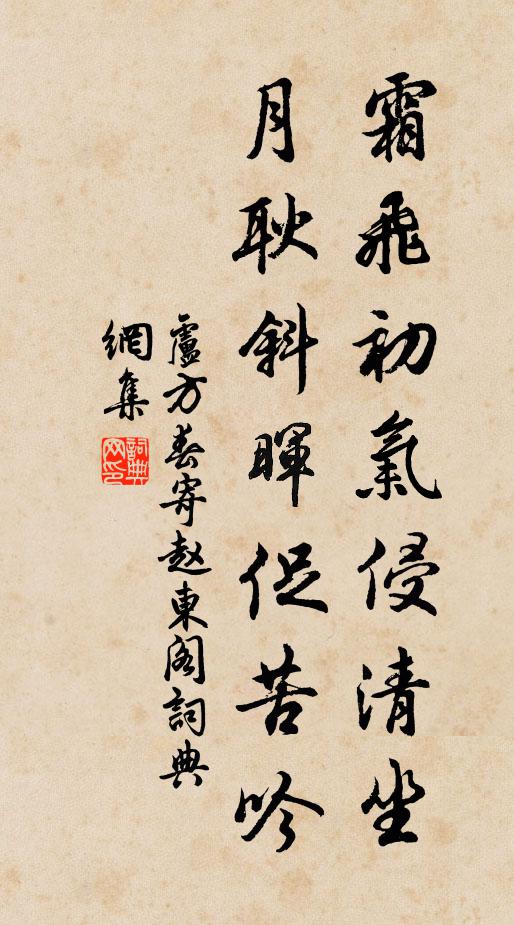 霜飛初氣侵清坐
月耿斜暉促苦吟
盧方春寄趙東閣詞典
網集
詞典网印